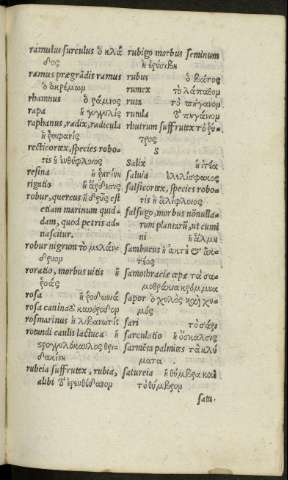 ramulus surculus ὁ κλά
δος
ramus prægrādis ramus
ὁ ὀκρέμωμ
rhamnus ὁ ῥάμνος
rapa ἡ γογγυλίς
raphanus, radix, radicula
ἡ ῥαφανίς
resticortex, species robo-
ris
resina ἡ ῥητίνη
rigatio
robur, quercus ἡ δρῦς est
etiam marinum quid-
dam, quod petris ad-
nascitur.
robur nigrum το μελάν-
δρυομ
roratio, morbus uitis ἡ
rosa ἡ ῥοδωνιά
rosa canina ὁ κυνόροδομ
rosmarinus ἡ λιβανωτίς
rotundi caulis lactuca ἡ
στρογγυλόκαυλος θρι-
δακίνη
rubeia suffrutex, rubia,
alibi
rubigo morbus seminum
ἡ ἐρυσίβη
rubus ὁ βάτος
rumex τὸ λάπαθομ
ruta τὸ πήγανομ
rutula
rhuirum suffrutex
S
Salix ἡ ἰτέα
saluia
falsicortex, species robo-
ris ἡ ἁλίφλοιος
falsugo, morbus nōnulla-
rum plantarū, ut cumi
ni ἡ ἅλμη
sambucus ἡ ἀκτὴ
samothraciæ cæpæ τὰ σα-
μοθράκια κρόμμυα
sapor ὁ χυλὸς καὶ χυ-
μός
sari τὸ σάρι
sarculatio ἡ σκάλσις
sarmēta palmites τὰ κλή
ματα.
satureia ἡ θύμβρα καὶ
τὸ θύμβρομ
satu-